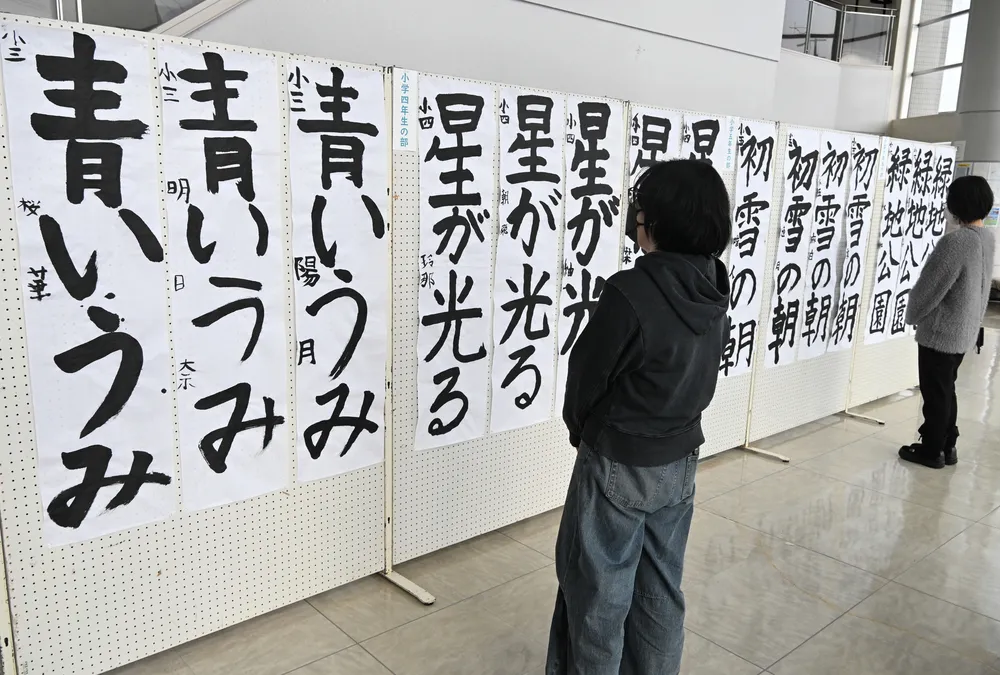 小三
青いうみ
桜
華
小三
青いうみ
明
日
大示
小三
青いうみ
陽
月
小学四年生の部
小四
星が光る
玲那
小四
星が光る
小四
星が光
小四
星
星
初雪の朝
初雪の朝
初雪の朝
初雪の朝
緑地公園
緑地公園
緑地公園